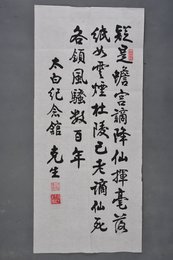 疑是蟾宫谪降仙挥毫落
纸如云烟杜陵已老谪仙死
各领风骚数百年
太白纪念馆 克生